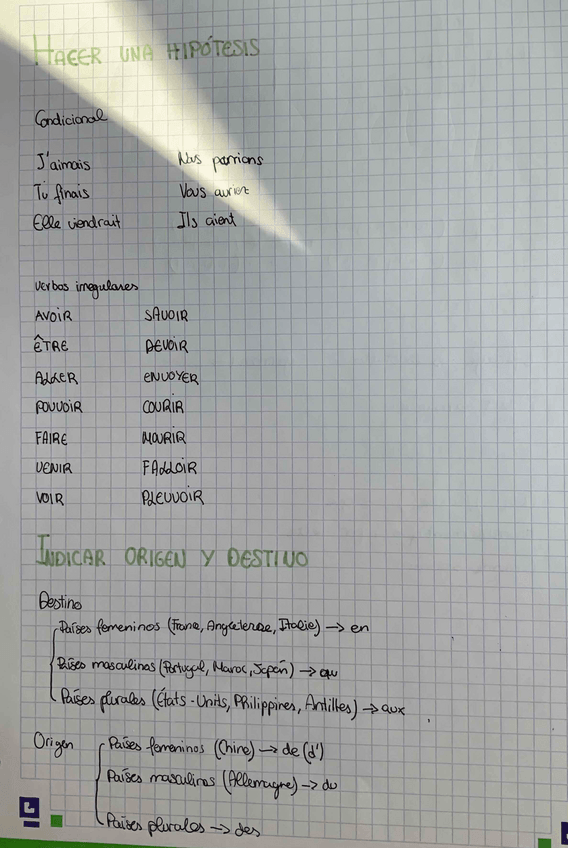 HACER UNA HIPÓTESIS
Condicional
J'aimais Nous parrions
Tu finais Vous auriez
Elle viendrait Ils aient
Verbos irregulares
AVOIR SAVOIR
ÊTRE DEVOIR
ALLER ENVOYER
POUVOIR COURIR
FAIRE MOURIR
VENIR FALLOIR
VOIR PLEUVOIR
INDICAR ORIGEN Y DESTINO
Destino
Países femeninos (France, Angleterre, Italie) → en
Países masculinos (Portugal, Maroc, Japon) → au
Países plurales (États-Units, Philippines, Antilles) → aux
Origen Países femeninos (Chine) → de (d')
Países masculinos (Allemagne) → du
Países plurales → des